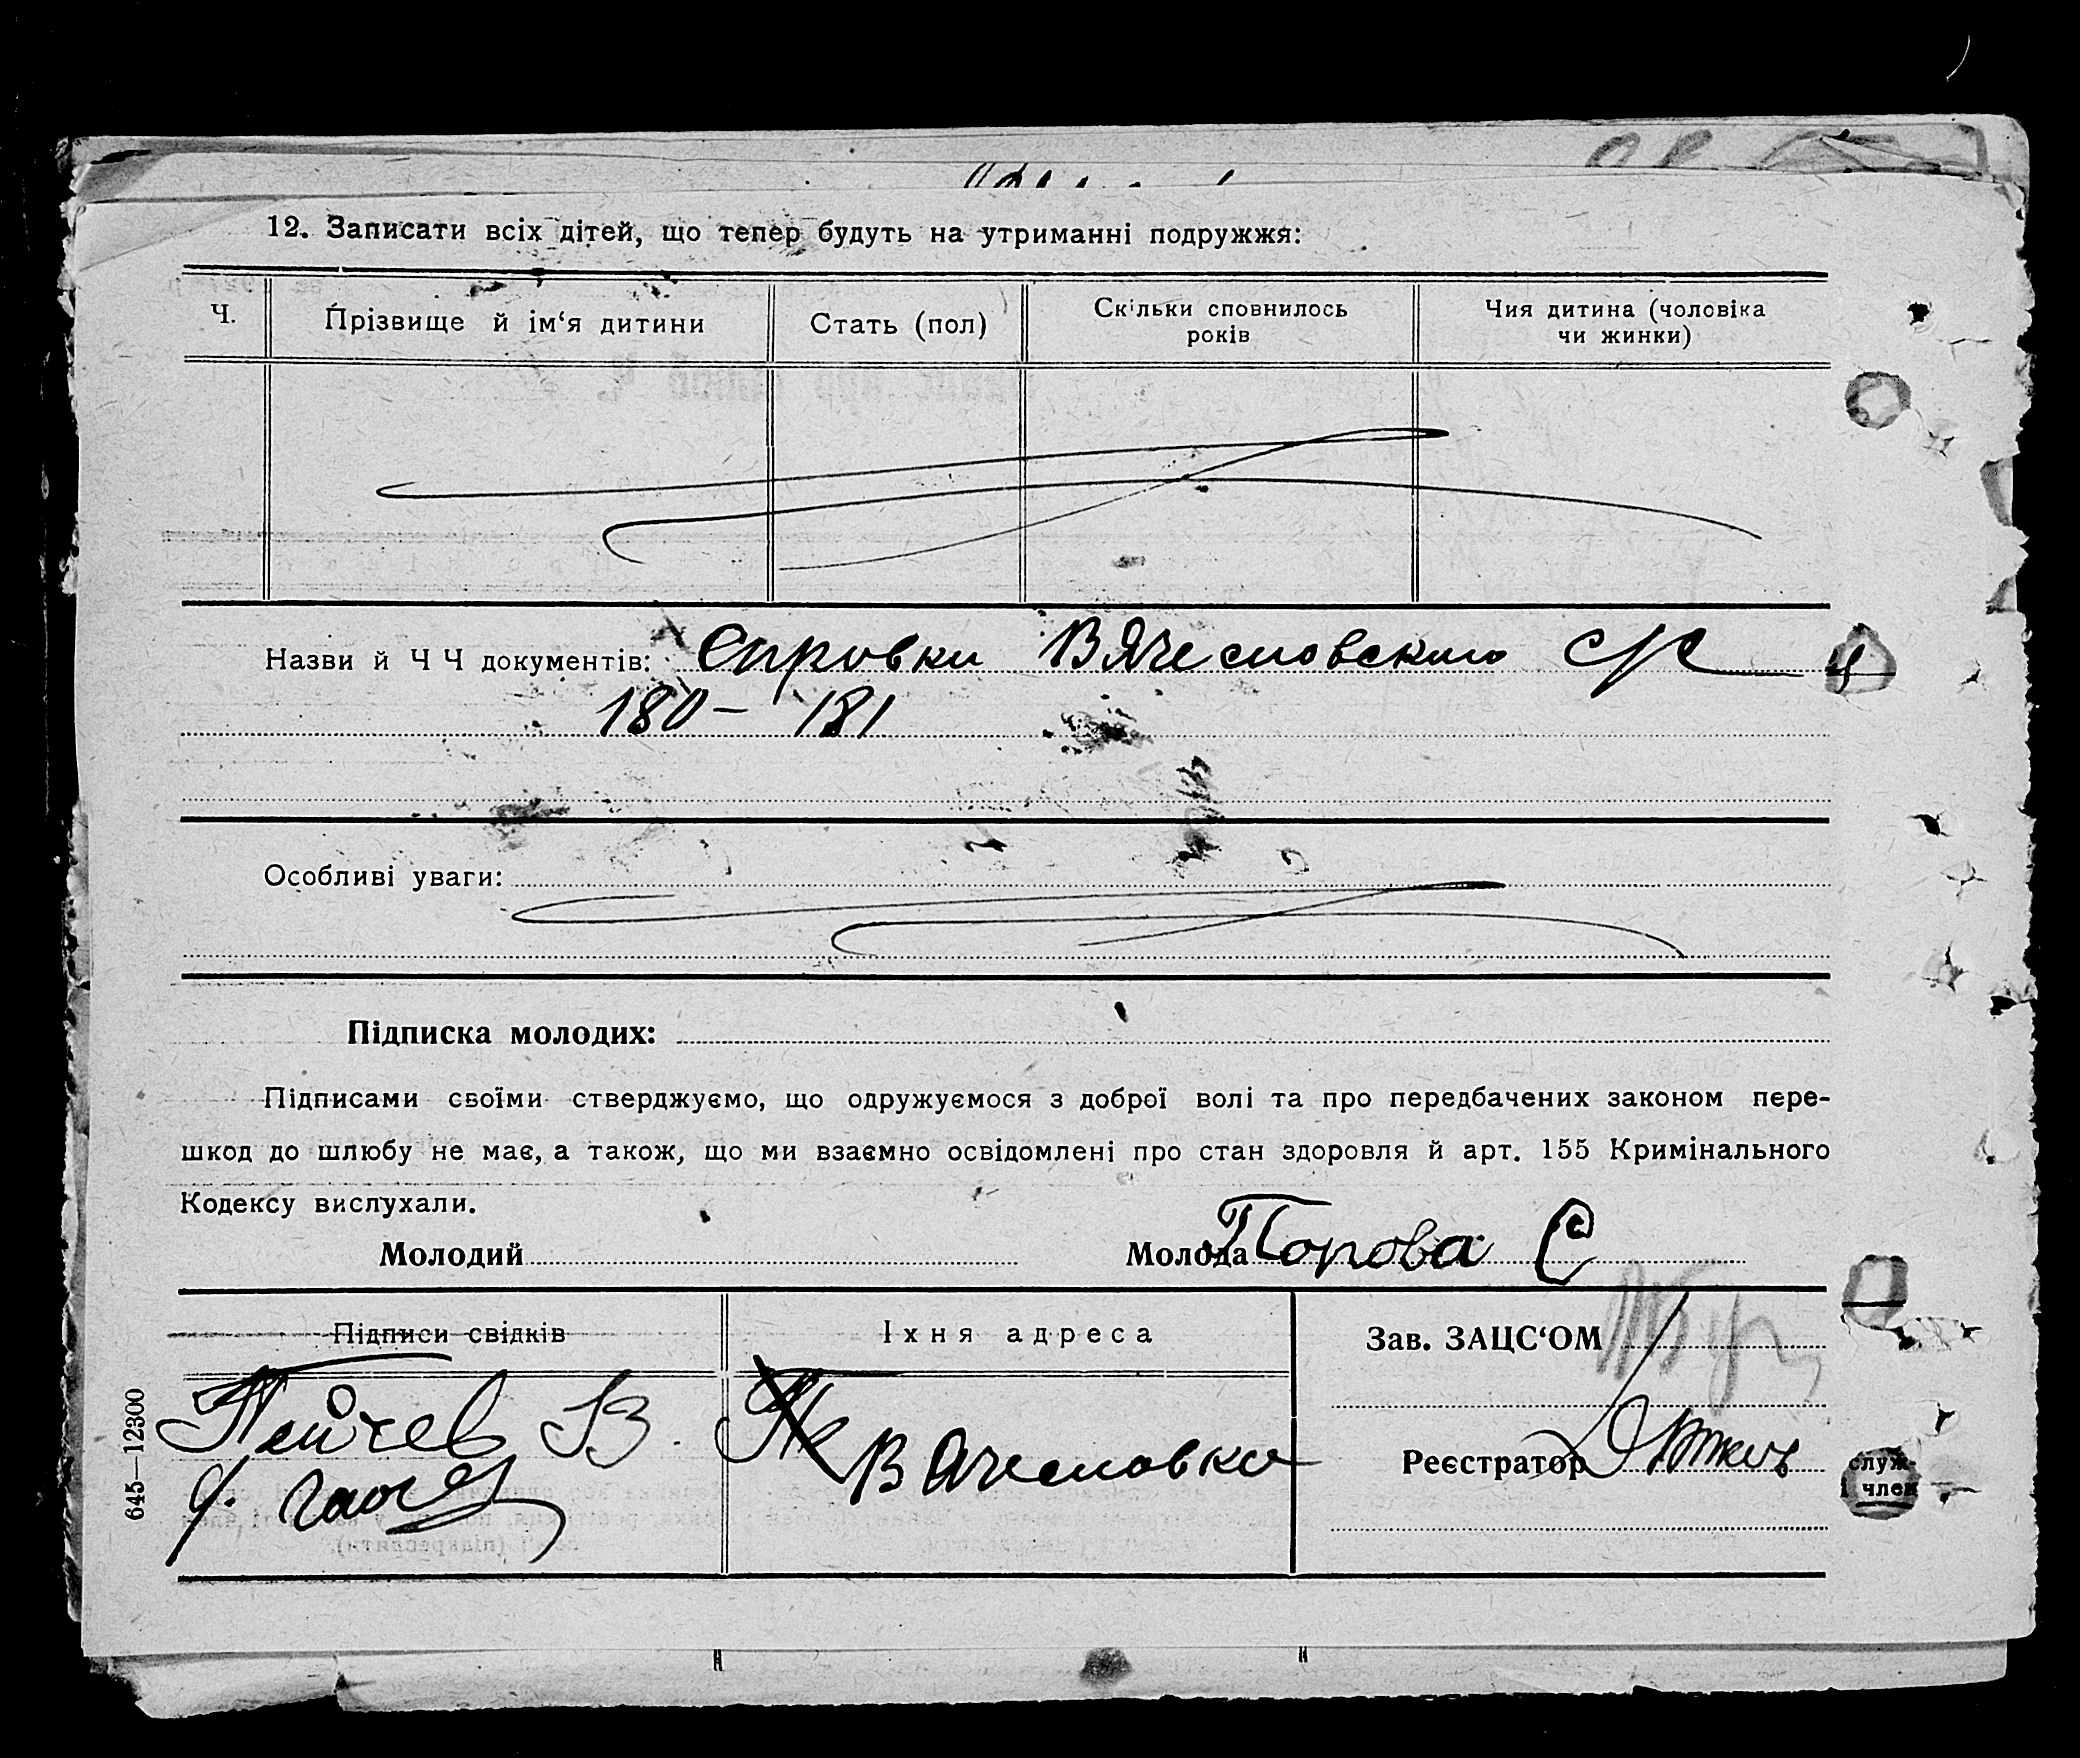 12. Записати всіх дітей, що тепер будуть на утриманні подружжя:
Ч.
Прізвище й ім‘я дитини
Стать (пол)
Скільки сповнилось
років
Чия дитина (чоловіка
чи жинки)
Назви й Ч Ч документів: Справки Вячесловскиго с/с
180 – 181
Особливі уваги:
Підписка молодих:
Підписами своїми стверджуємо, що одружуємося з доброї волі та про передбачених законом пере-
шкод до шлюбу не має, а також, що ми взаємно освідомлені про стан здоровля й арт. 155 Кримінального
Кодексу вислухали.
Молодий
Молода Попова С
Підписи свідків
Іхня адреса
Зав. ЗАЦС‘ОМ
Пейчев В.
Вячесловка
Реєстратор
служ-
і член
645—12300